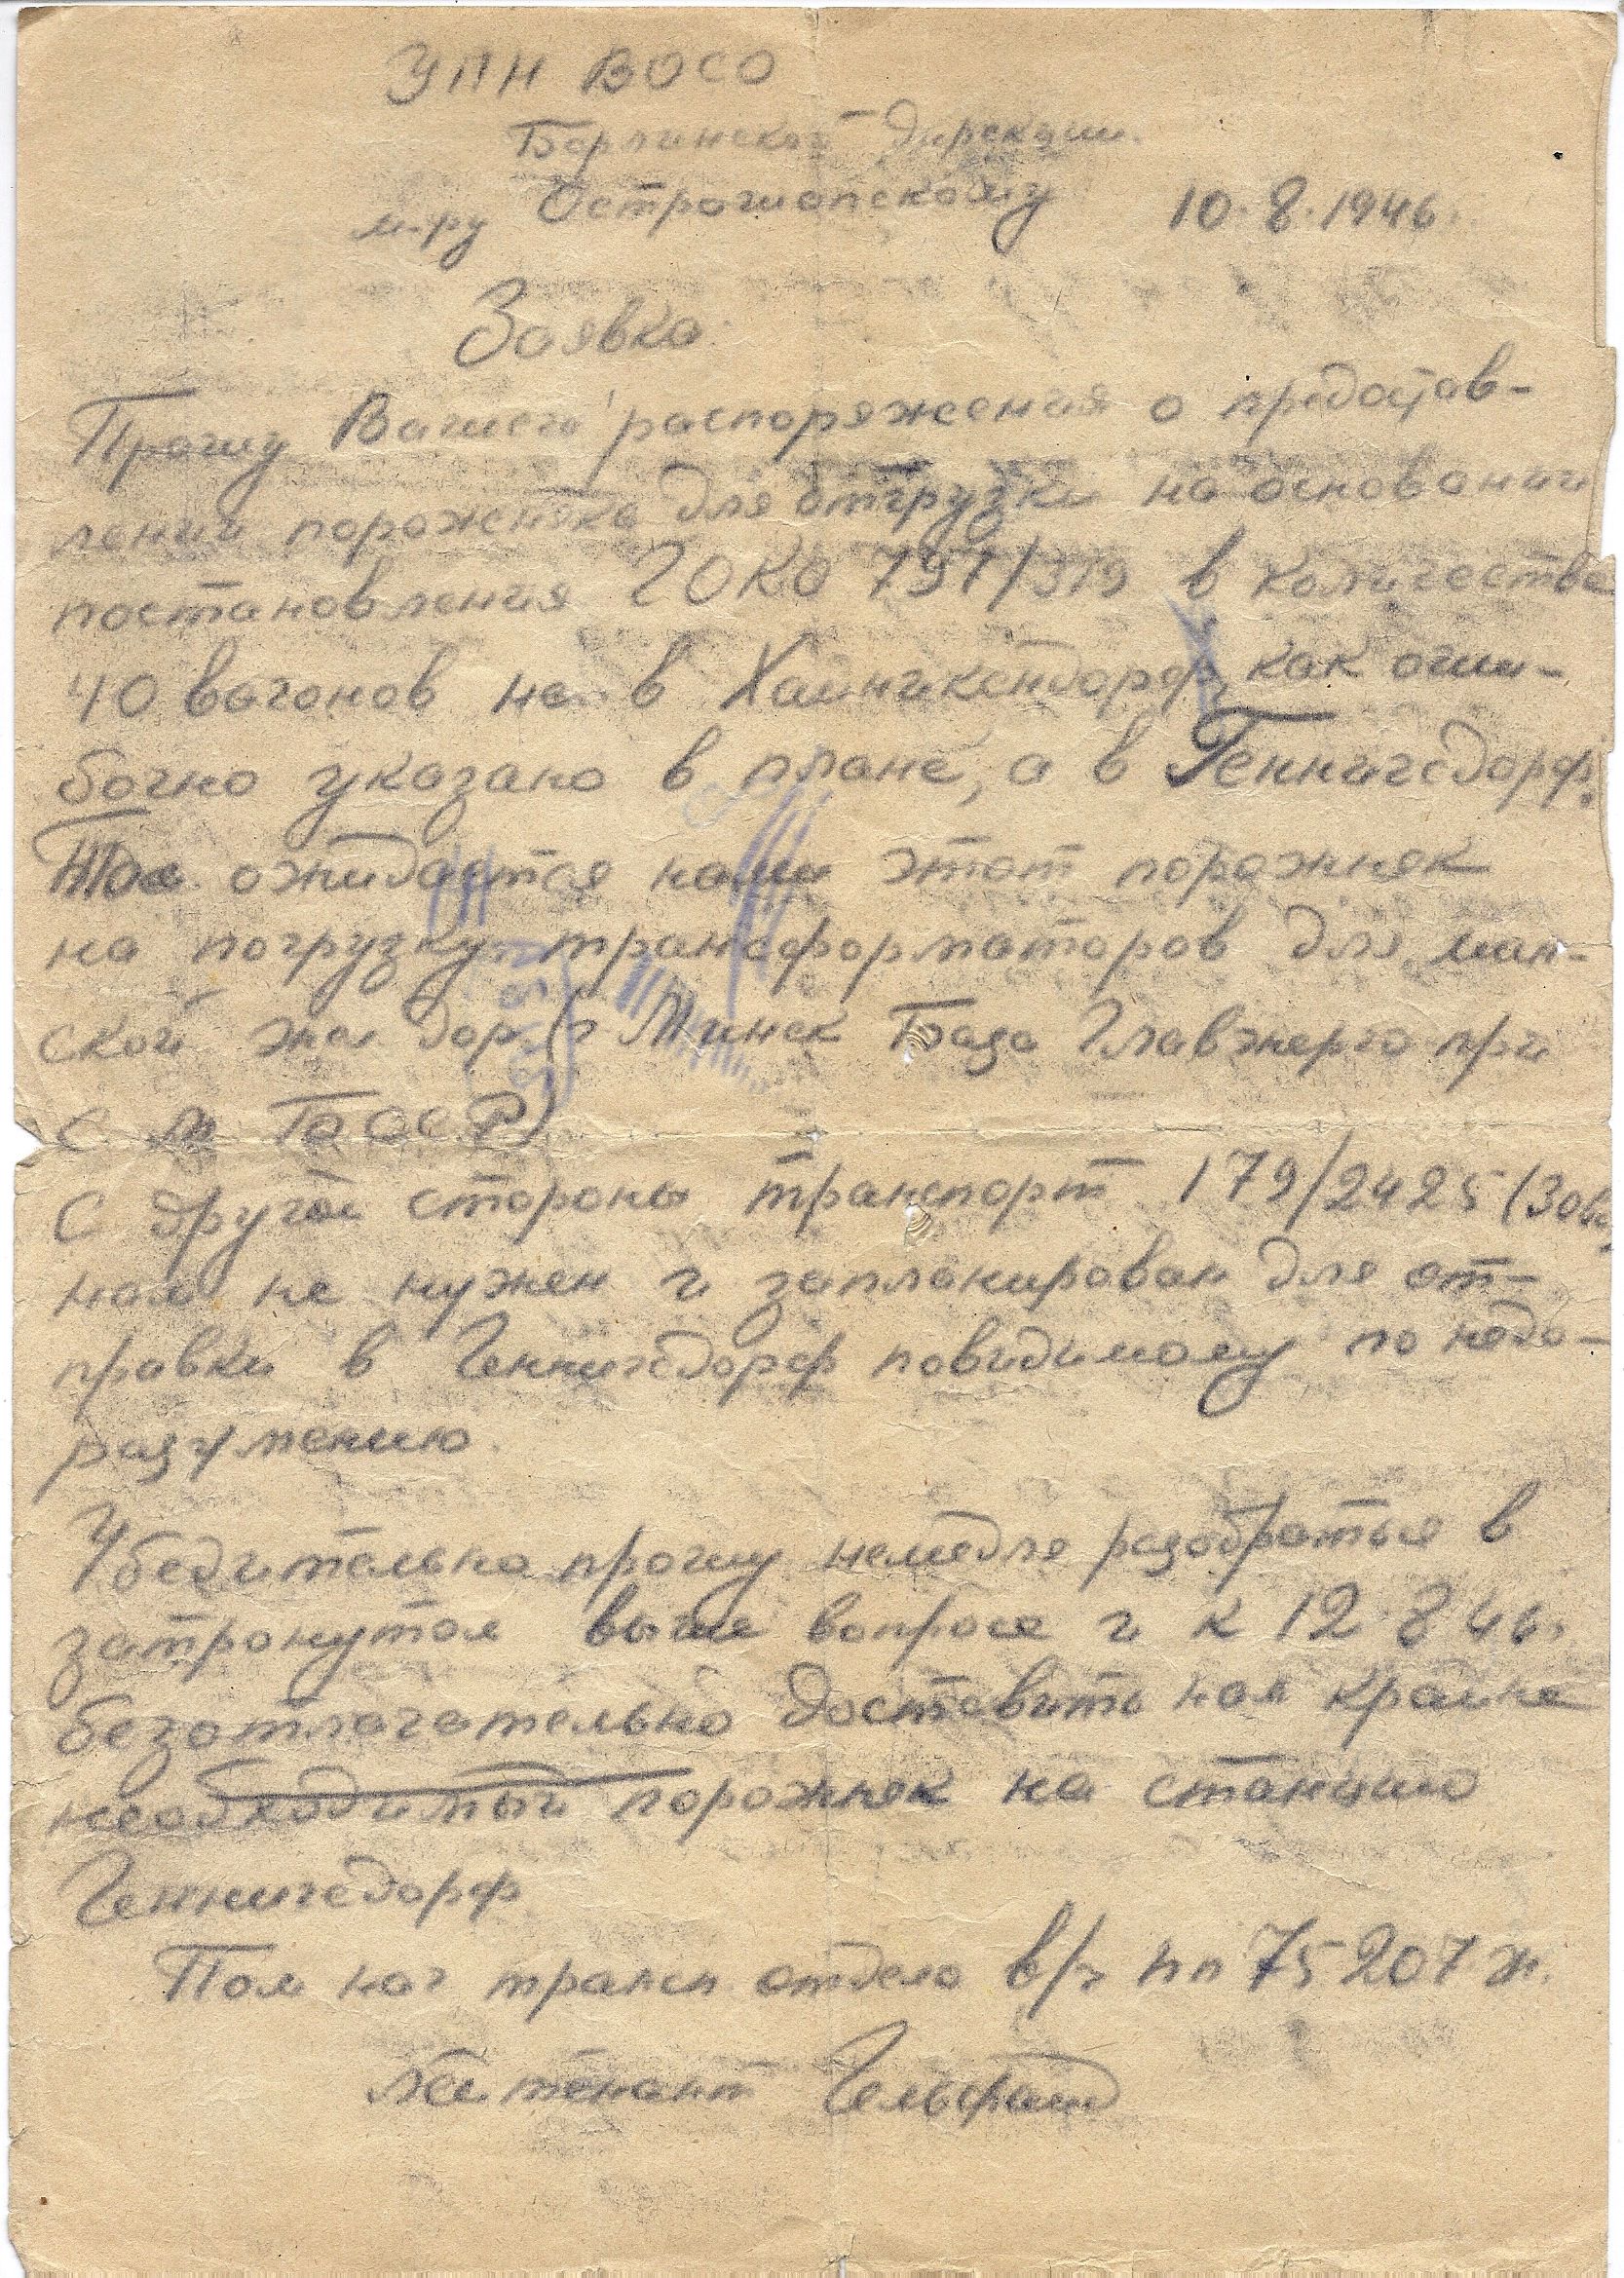 УПН ВОСО
Берлинской дирекции.
м-ру Острошапскому 10.8.1946.
Заявка.
Прошу Вашего распоряжения о предостав-
лении порожняка для отгрузки на основании
постановления ГОКО 797/319 в количестве
40 вагонов не в Хайникендорф, как оши-
бочно указано в плане, а в Геннигсдорф.
ожидается нами этот порожняк
на погрузку трансформаторов для мин-
ской жел дор. (г Минск База Главэнерго при
С М БССР)
С другой стороны транспорт 179/2425 (30ваг
нам не нужен и запланирован для от-
правки в Геннигсдорф повидимому по недо-
разумению.
Убедительно прошу немедля разобраться в
затронутом выше вопросе и к 12 8 46.
безотлагательно доставить нам крайне
необходимый порожняк на станцию
Геннигсдорф
Пом нач трансп отдела в/ч пп 75207 ж.
лейтенант Гельфанд